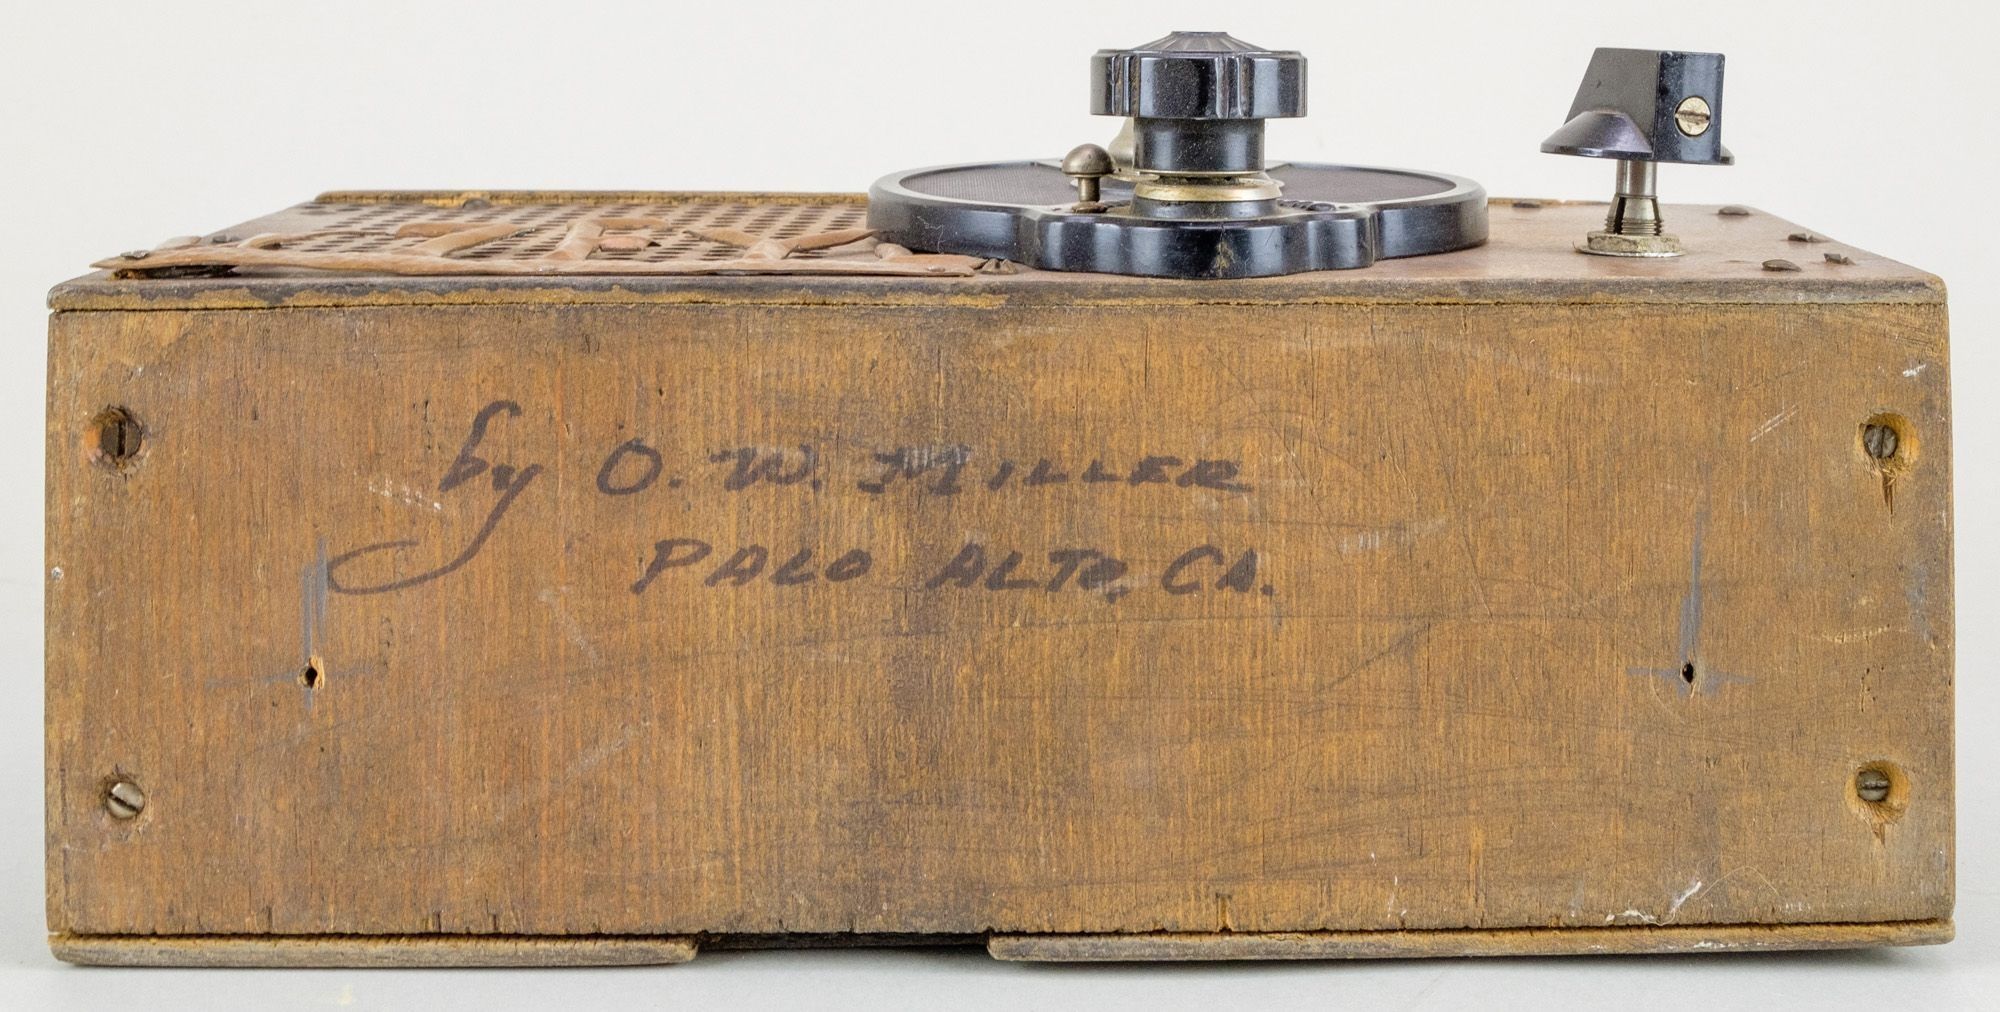 by O. W. MILLER
PALO ALTO, CA.